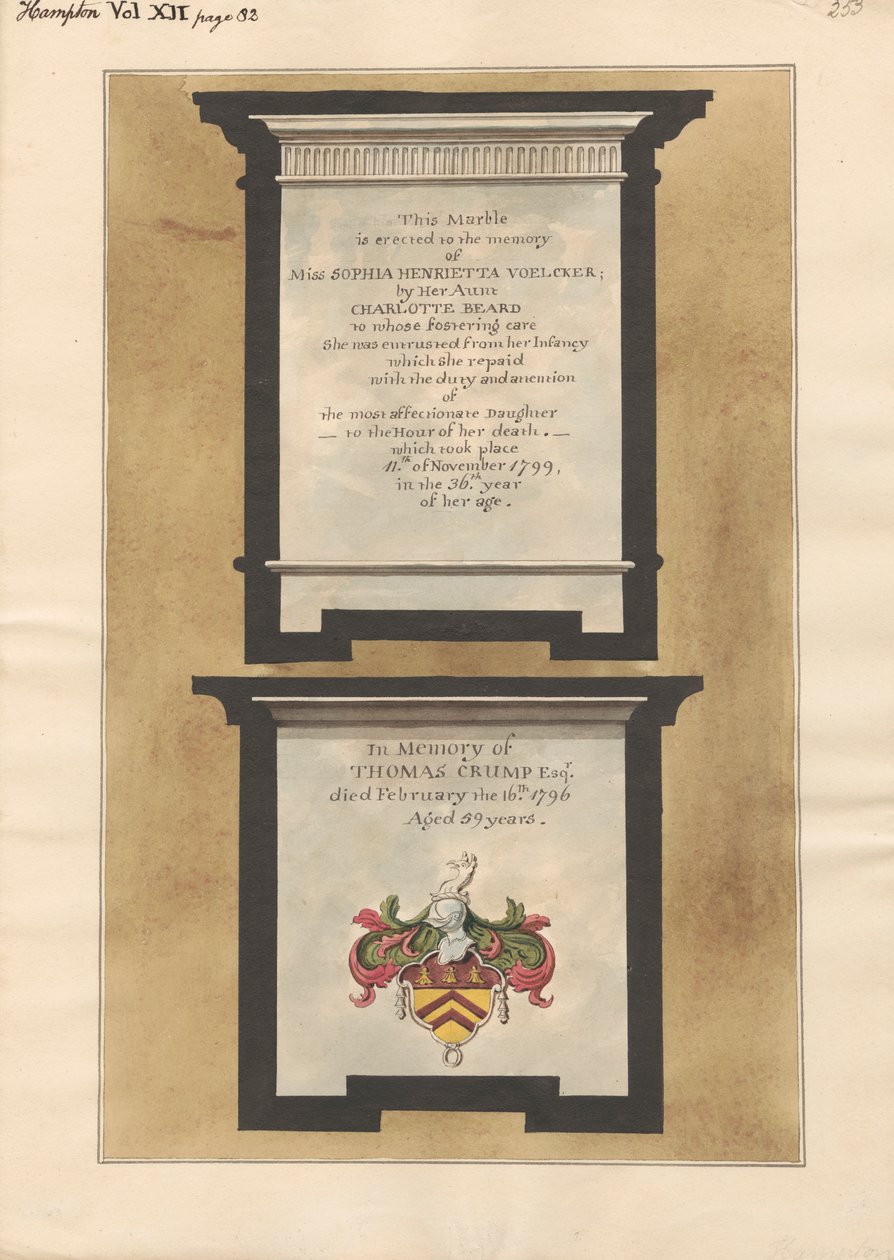 Hampton Vol XII page 82
253
This Marble
is erected to the memory
of
Miss SOPHIA HENRIETTA VOELCKER;
by Her Aunt
CHARLOTTE BEARD
to whose fostering care
She was entrusted from her Infancy
which She repaid
with the duty and attention
of
the most affectionate Daughter
— to the Hour of her death. —
which took place
11.th of November 1799,
in the 36.th year
of her age.
In Memory of
THOMAS CRUMP Esqr.
died February the 16.th 1796
Aged 59 years.